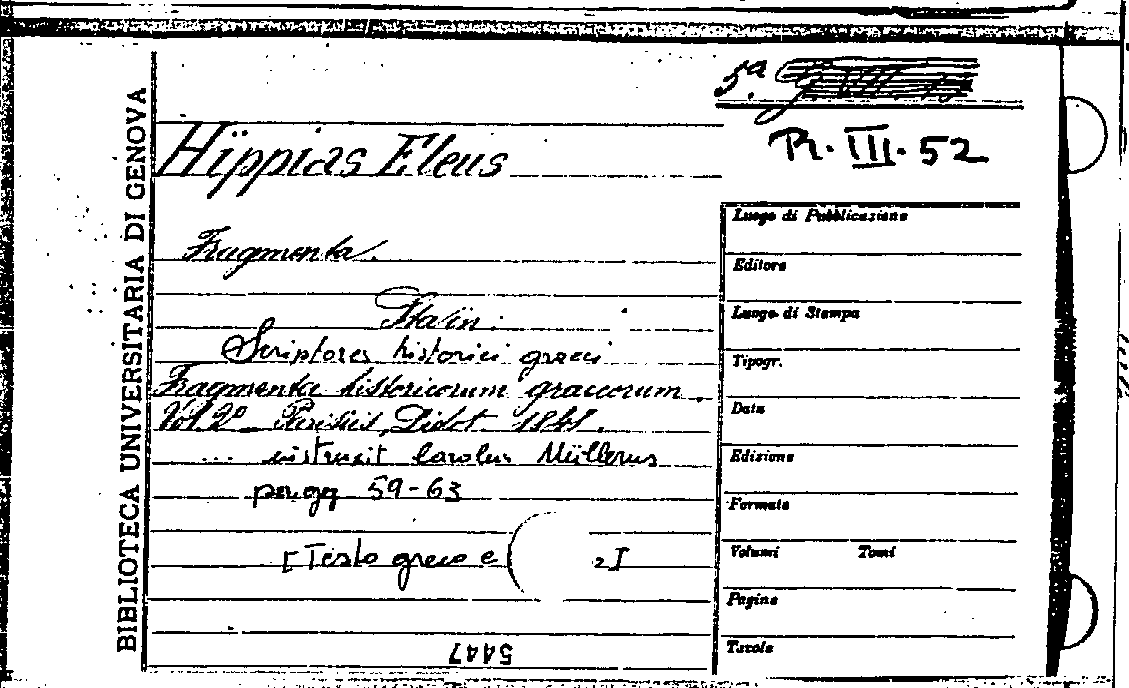 BIBLIOTECA UNIVERSITARIA DI GENOVA
5ª
R. III. 52
Hippias Eleus
Fragmenta.
Sta in:
Scriptores historici graeci
Fragmenta historicorum graecorum.
Vol. 2º Parisiis, Didot 1841.
... instruxit Carolus Müllerus
pagg 59-63
[Testo greco e
5447
Luogo di Pubblicazione
Editore
Luogo di Stampa
Tipogr.
Data
Edizione
Formato
Volumi Tomi
Pagine
Tavole